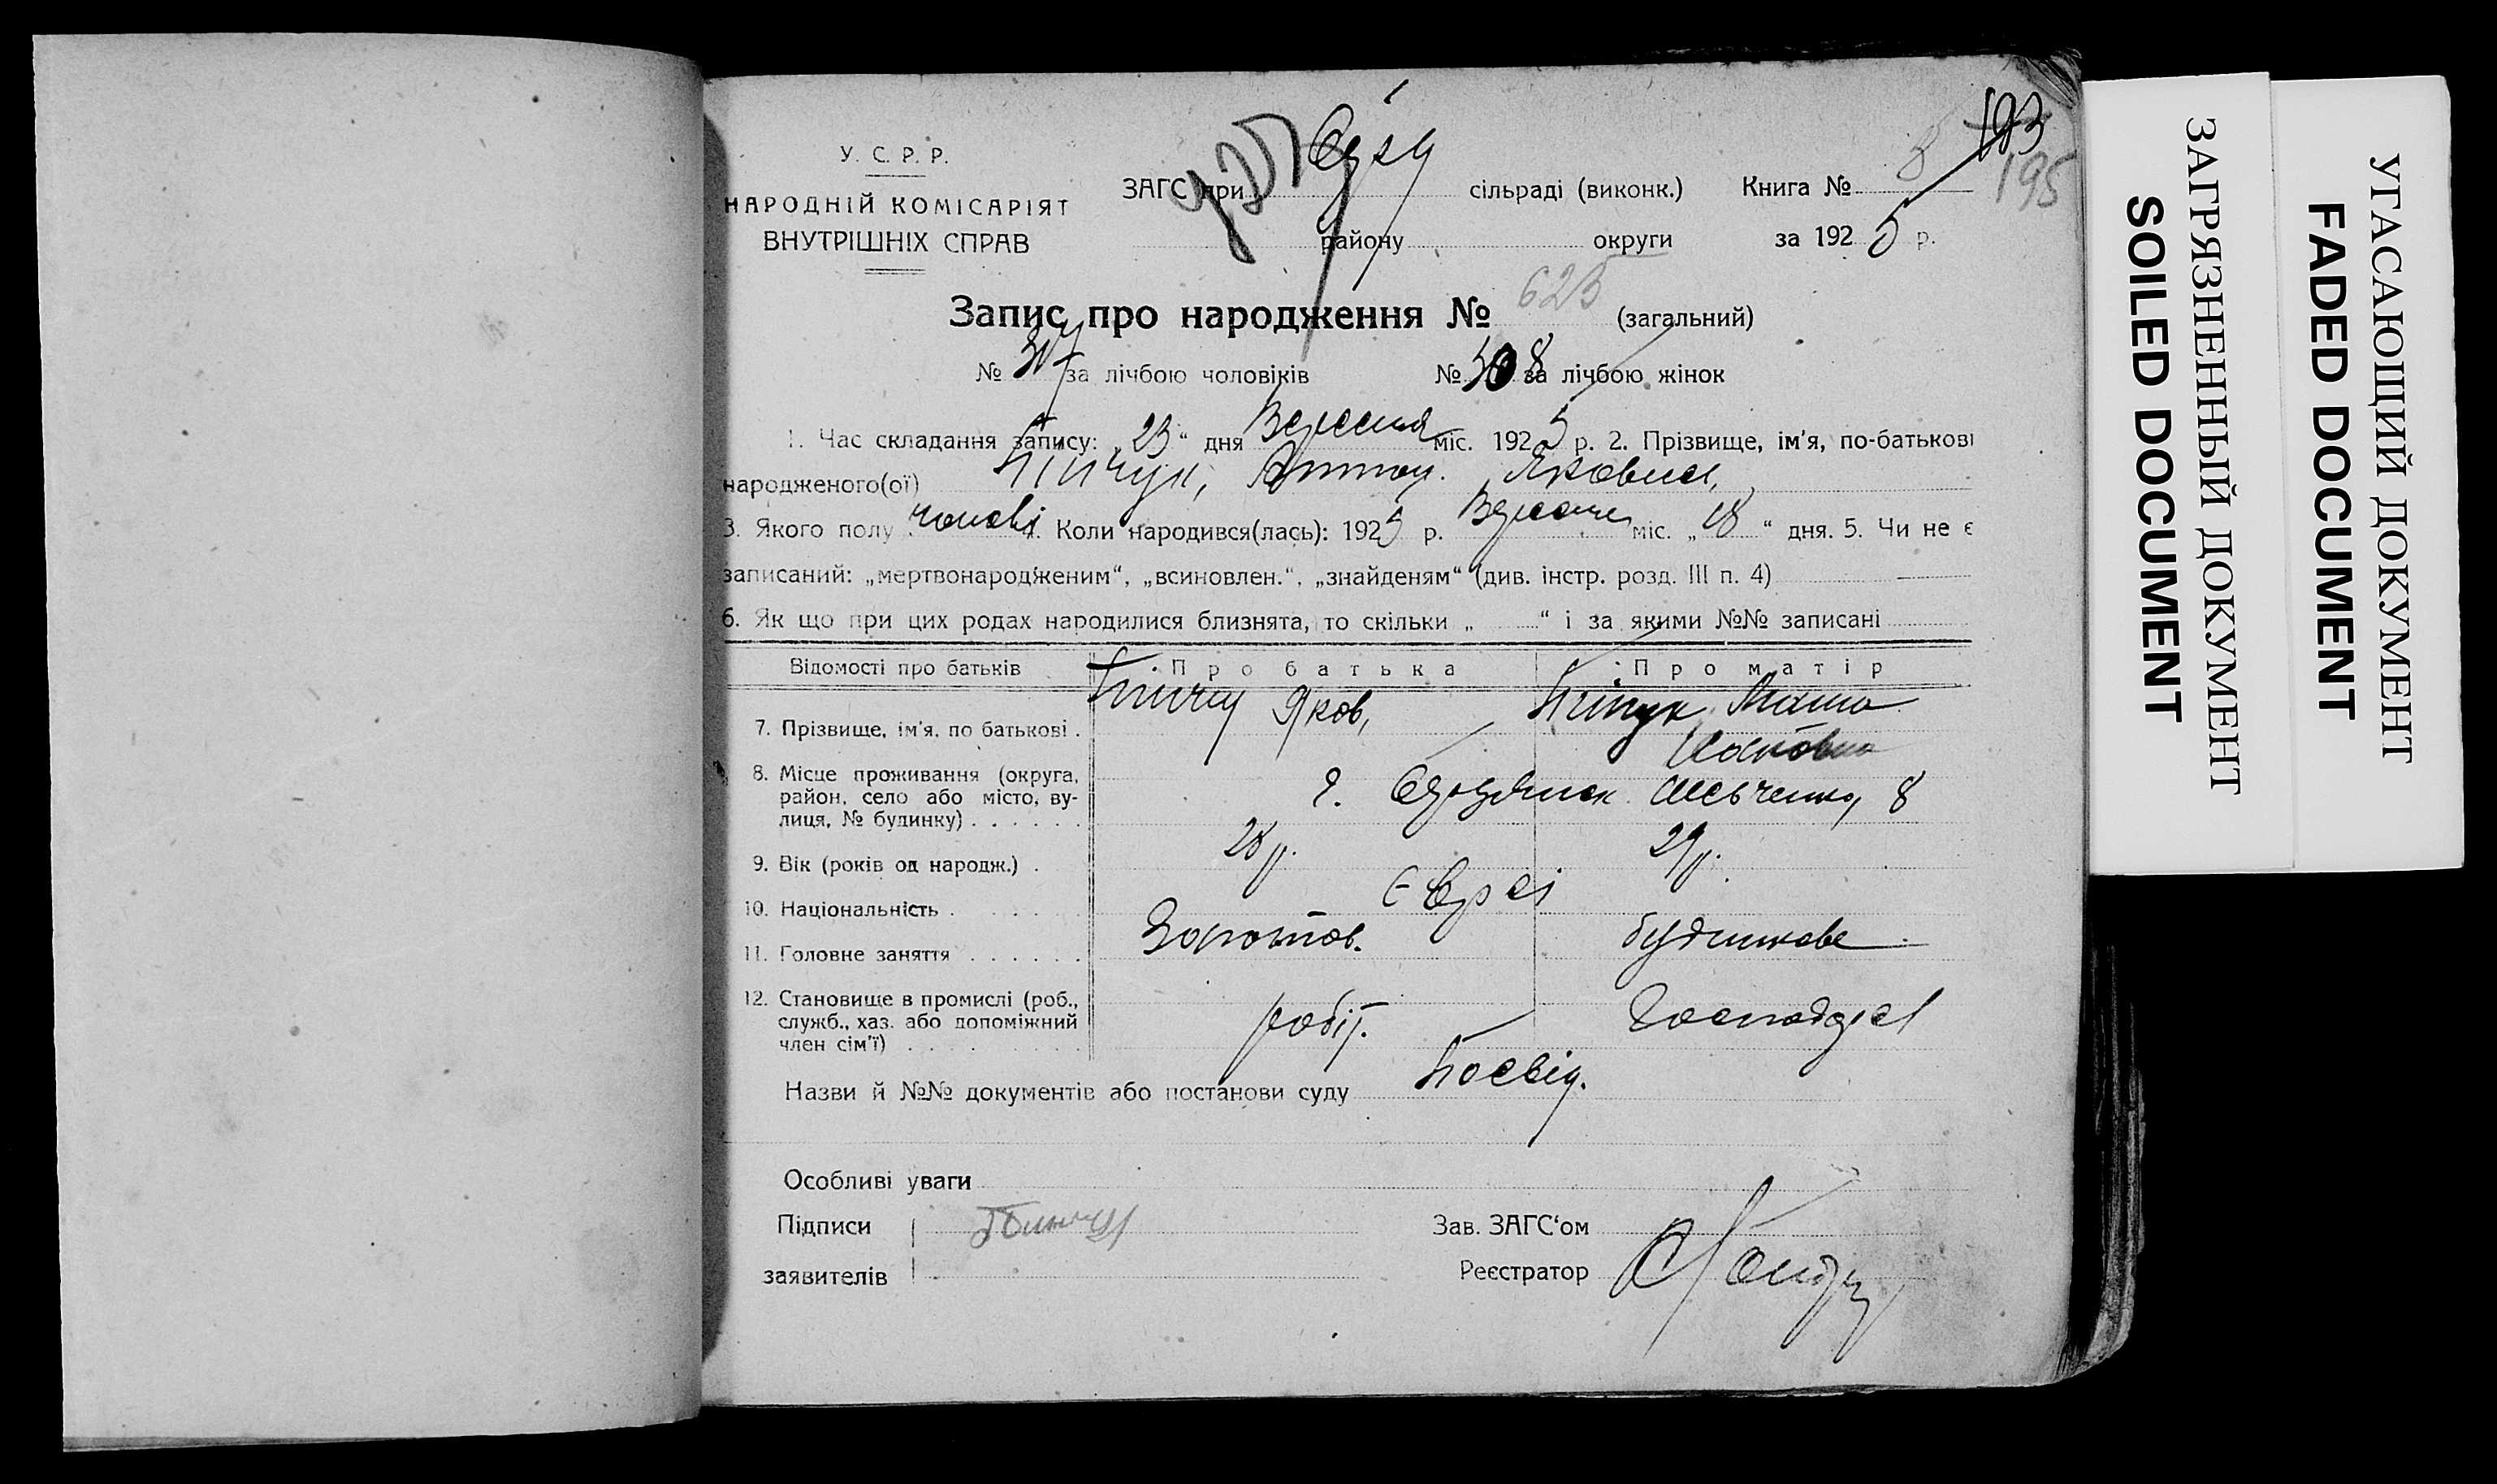 193
195
У. С. Р. Р.
НАРОДНІЙ КОМІСАРІЯТ
ВНУТРІШНІХ СПРАВ
ЗАГС при сільраді (виконк.) Книга № 8
району округи за 1925 р.
Запис про народження № 625 (загальний)
№ за лічбою чоловіків № за лічбою жінок
1. Час складання запису: „23“ дня Вересня міс. 1925 р. 2. Прізвище, ім'я, по-батькові
народженого(ої) Якович,
3. Якого полу чолові. Коли народився(лась): 1925 р. Вересня міс. „18“ дня. 5. Чи не є
записаний: „мертвонародженим“, „всиновлен.“, „знайденям“ (див. інстр. розд. III п. 4)
6. Як що при цих родах народилися близнята, то скільки „ “ і за якими №№ записані
Відомості про батьків Про батька Про матір
7. Прізвище, ім'я, по батькові . Яков, Пінчук
8. Місце проживання (округа,
район, село або місто, ву-
лиця, № будинку) . . . . . . Шевченко, 8
9. Вік (років од народж.) . 28 р. 29 р.
10. Національність . Євреі
11. Головне заняття . . . . . . будинкове
12. Становище в промислі (роб.,
служб., хаз. або допоміжний
член сім'ї) . . . . робіт. господар
Назви й №№ документів або постанови суду Посвід.
Особливі уваги
Підписи
заявителів
Зав. ЗАГС‘ом
Реєстратор
ЗАГРЯЗНЕННЫЙ ДОКУМЕНТ
SOILED DOCUMENT
УГАСАЮЩИЙ ДОКУМЕНТ
FADED DOCUMENT